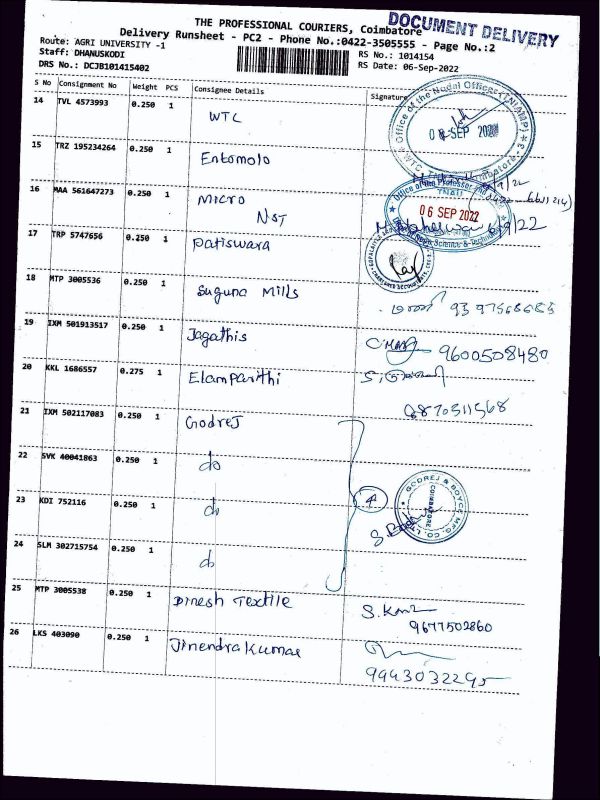 THE PROFESSIONAL COURIERS, Coimbatore
DOCUMENT DELIVERY
Delivery Runsheet - PC2 - Phone No.:0422-3505555 - Page No.:2
Route: AGRI UNIVERSITY -1
RS No.: 1014154
Staff: DHANUSKODI
RS Date: 06-Sep-2022
DRS No.: DCJB101415402
S No Consignment No Weight PCS Consignee Details Signature
14 TVL 4573993 0.250 1 WTC
Office of the Nodal Officer (NIAMP)
SEP
15 TRZ 195234264 0.250 1 Entomolo
16 MAA 561647273 0.250 1 Micro
NST
Office of the Professor
TNAU
06 SEP 2022
Science & Techn
6/9/22
17 TRP 5747656 0.250 1 Patiswara
18 MTP 3005536 0.250 1 Suguna Mills
19 IXM 501913517 0.250 1 Jagathis
9600508480
20 KKL 1686557 0.275 1 Elamparithi
21 IXM 502117083 0.250 1 Godrej
9870511568
22 SVK 40041863 0.250 1 do
23 KDI 752116 0.250 1 do
4
GODREJ & BOYCE MFG. CO. LTD.
COIMBATORE
24 SLM 302715754 0.250 1 do
25 MTP 3005538 0.250 1 Dinesh Textile
9677502860
26 LKS 403090 0.250 1 Jinendrakumar
9943032295